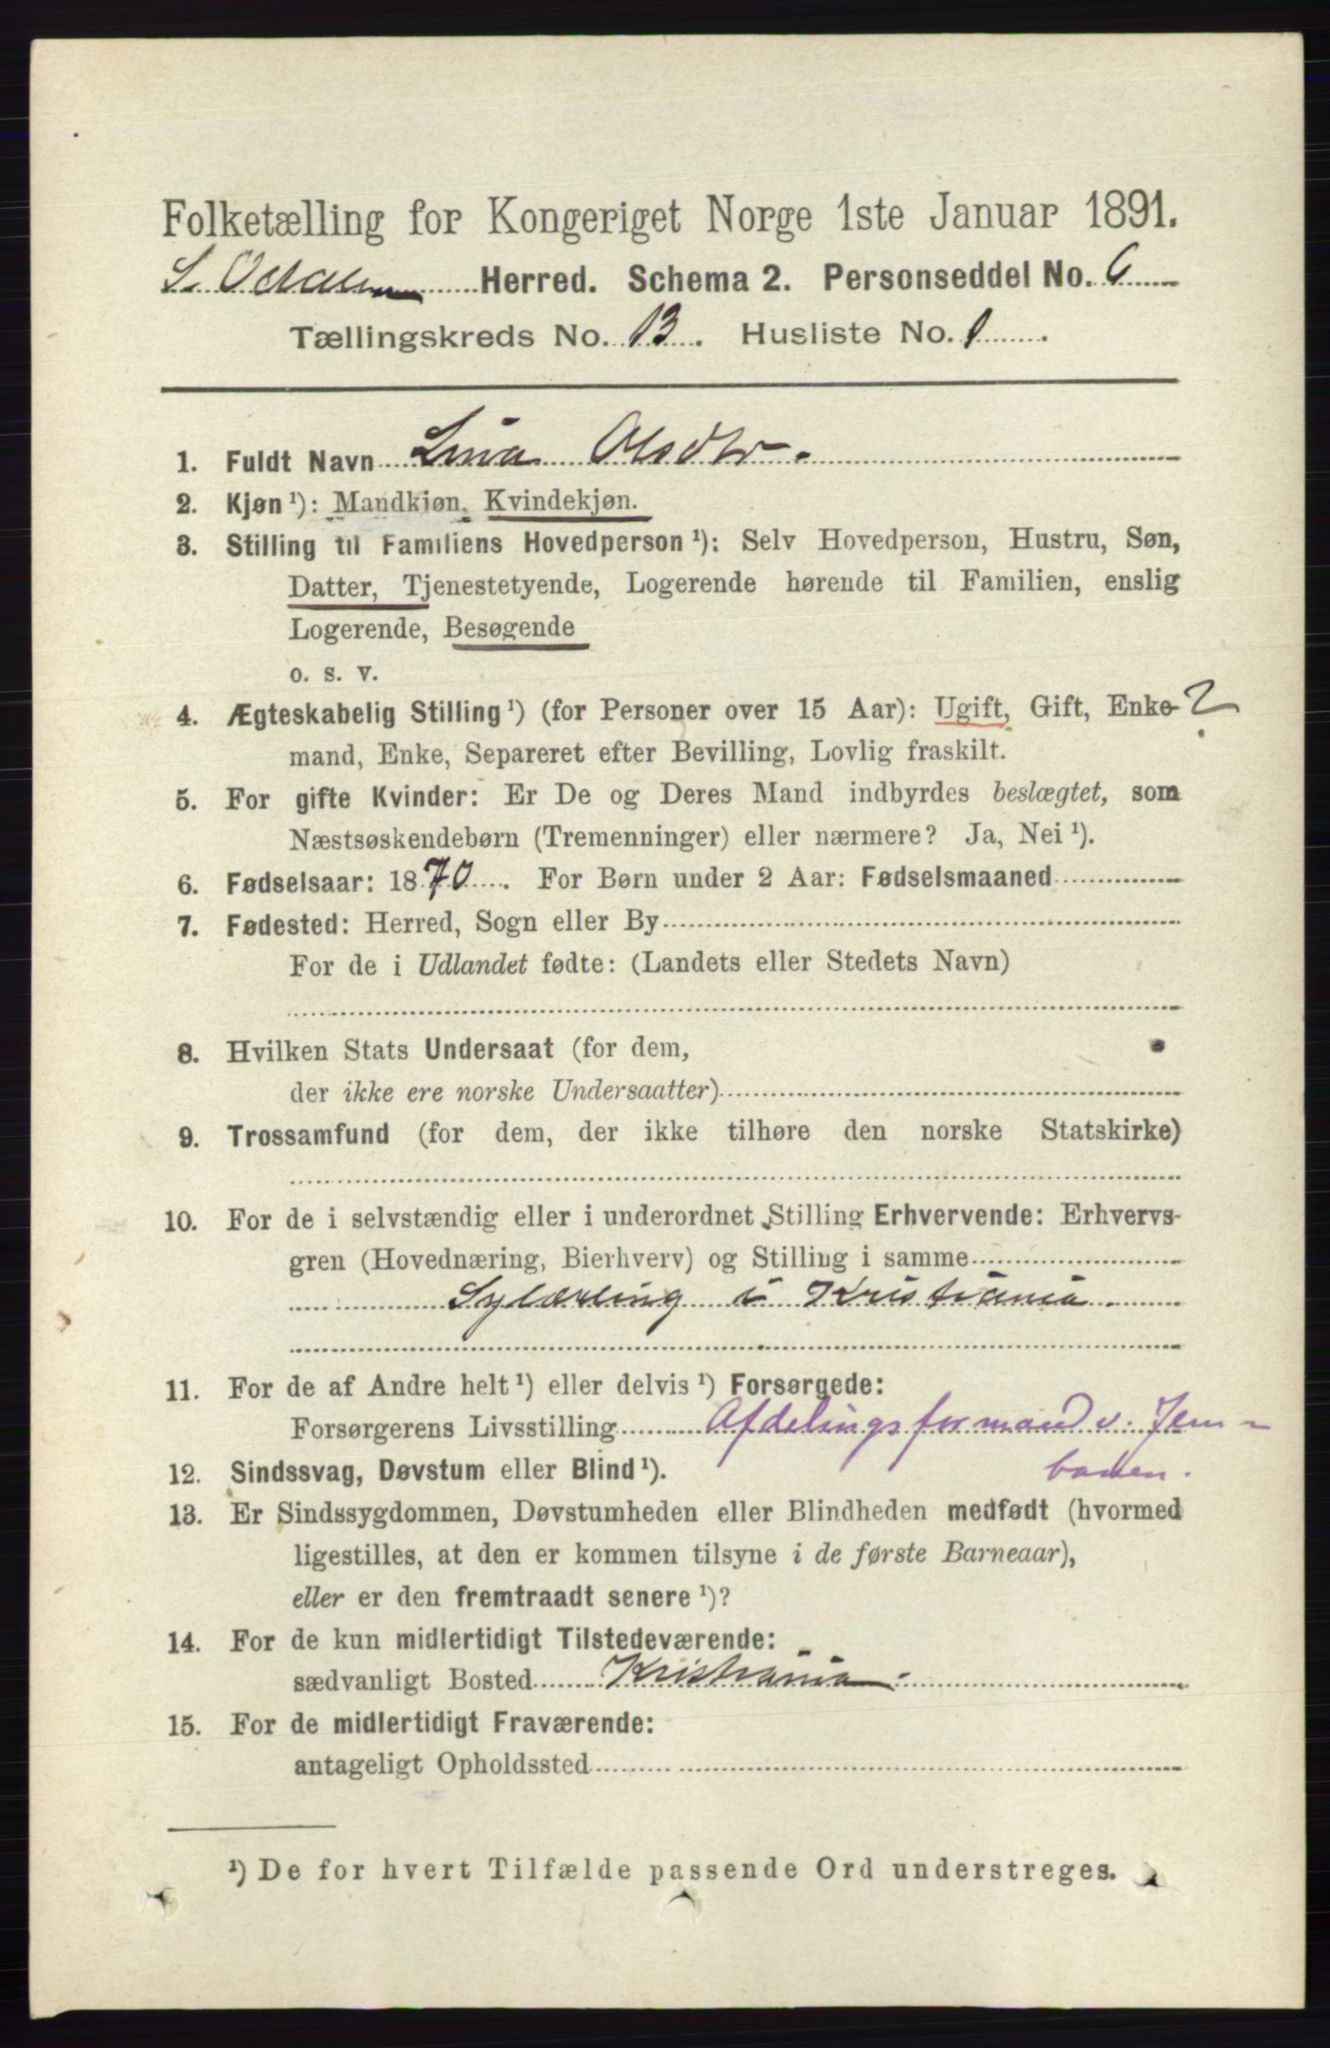 Folketælling for Kongeriget Norge 1ste Januar 1891.
S. Odalen Herred. Schema 2. Personseddel No. 6
Tællingskreds No. 13. Husliste No. 1.
1. Fuldt Navn Lina Olsdtr.
2. Kjøn ¹): Mandkjøn, Kvindekjøn.
3. Stilling til Familiens Hovedperson ¹): Selv Hovedperson, Hustru, Søn,
Datter, Tjenestetyende, Logerende hørende til Familien, enslig
Logerende, Besøgende
o. s. v.
4. Ægteskabelig Stilling ¹) (for Personer over 15 Aar): Ugift, Gift, Enke- ?
mand, Enke, Separeret efter Bevilling, Lovlig fraskilt.
5. For gifte Kvinder: Er De og Deres Mand indbyrdes beslægtet, som
Næstsøskendebørn (Tremenninger) eller nærmere? Ja, Nei ¹).
6. Fødselsaar: 1870. For Børn under 2 Aar: Fødselsmaaned
7. Fødested: Herred, Sogn eller By
For de i Udlandet fødte: (Landets eller Stedets Navn)
8. Hvilken Stats Undersaat (for dem,
der ikke ere norske Undersaatter)
9. Trossamfund (for dem, der ikke tilhøre den norske Statskirke)
10. For de i selvstændig eller i underordnet Stilling Erhvervende: Erhvervs-
gren (Hovednæring, Bierhverv) og Stilling i samme
Sylærling i Kristiania
11. For de af Andre helt ¹) eller delvis ¹) Forsørgede:
Forsørgerens Livsstilling Afdelingsformand v. Jern-
banen.
12. Sindssvag, Døvstum eller Blind ¹).
13. Er Sindssygdommen, Døvstumheden eller Blindheden medfødt (hvormed
ligestilles, at den er kommen tilsyne i de første Barneaar),
eller er den fremtraadt senere ¹)?
14. For de kun midlertidigt Tilstedeværende:
sædvanligt Bosted Kristiania.
15. For de midlertidigt Fraværende:
antageligt Opholdssted
¹) De for hvert Tilfælde passende Ord understreges.